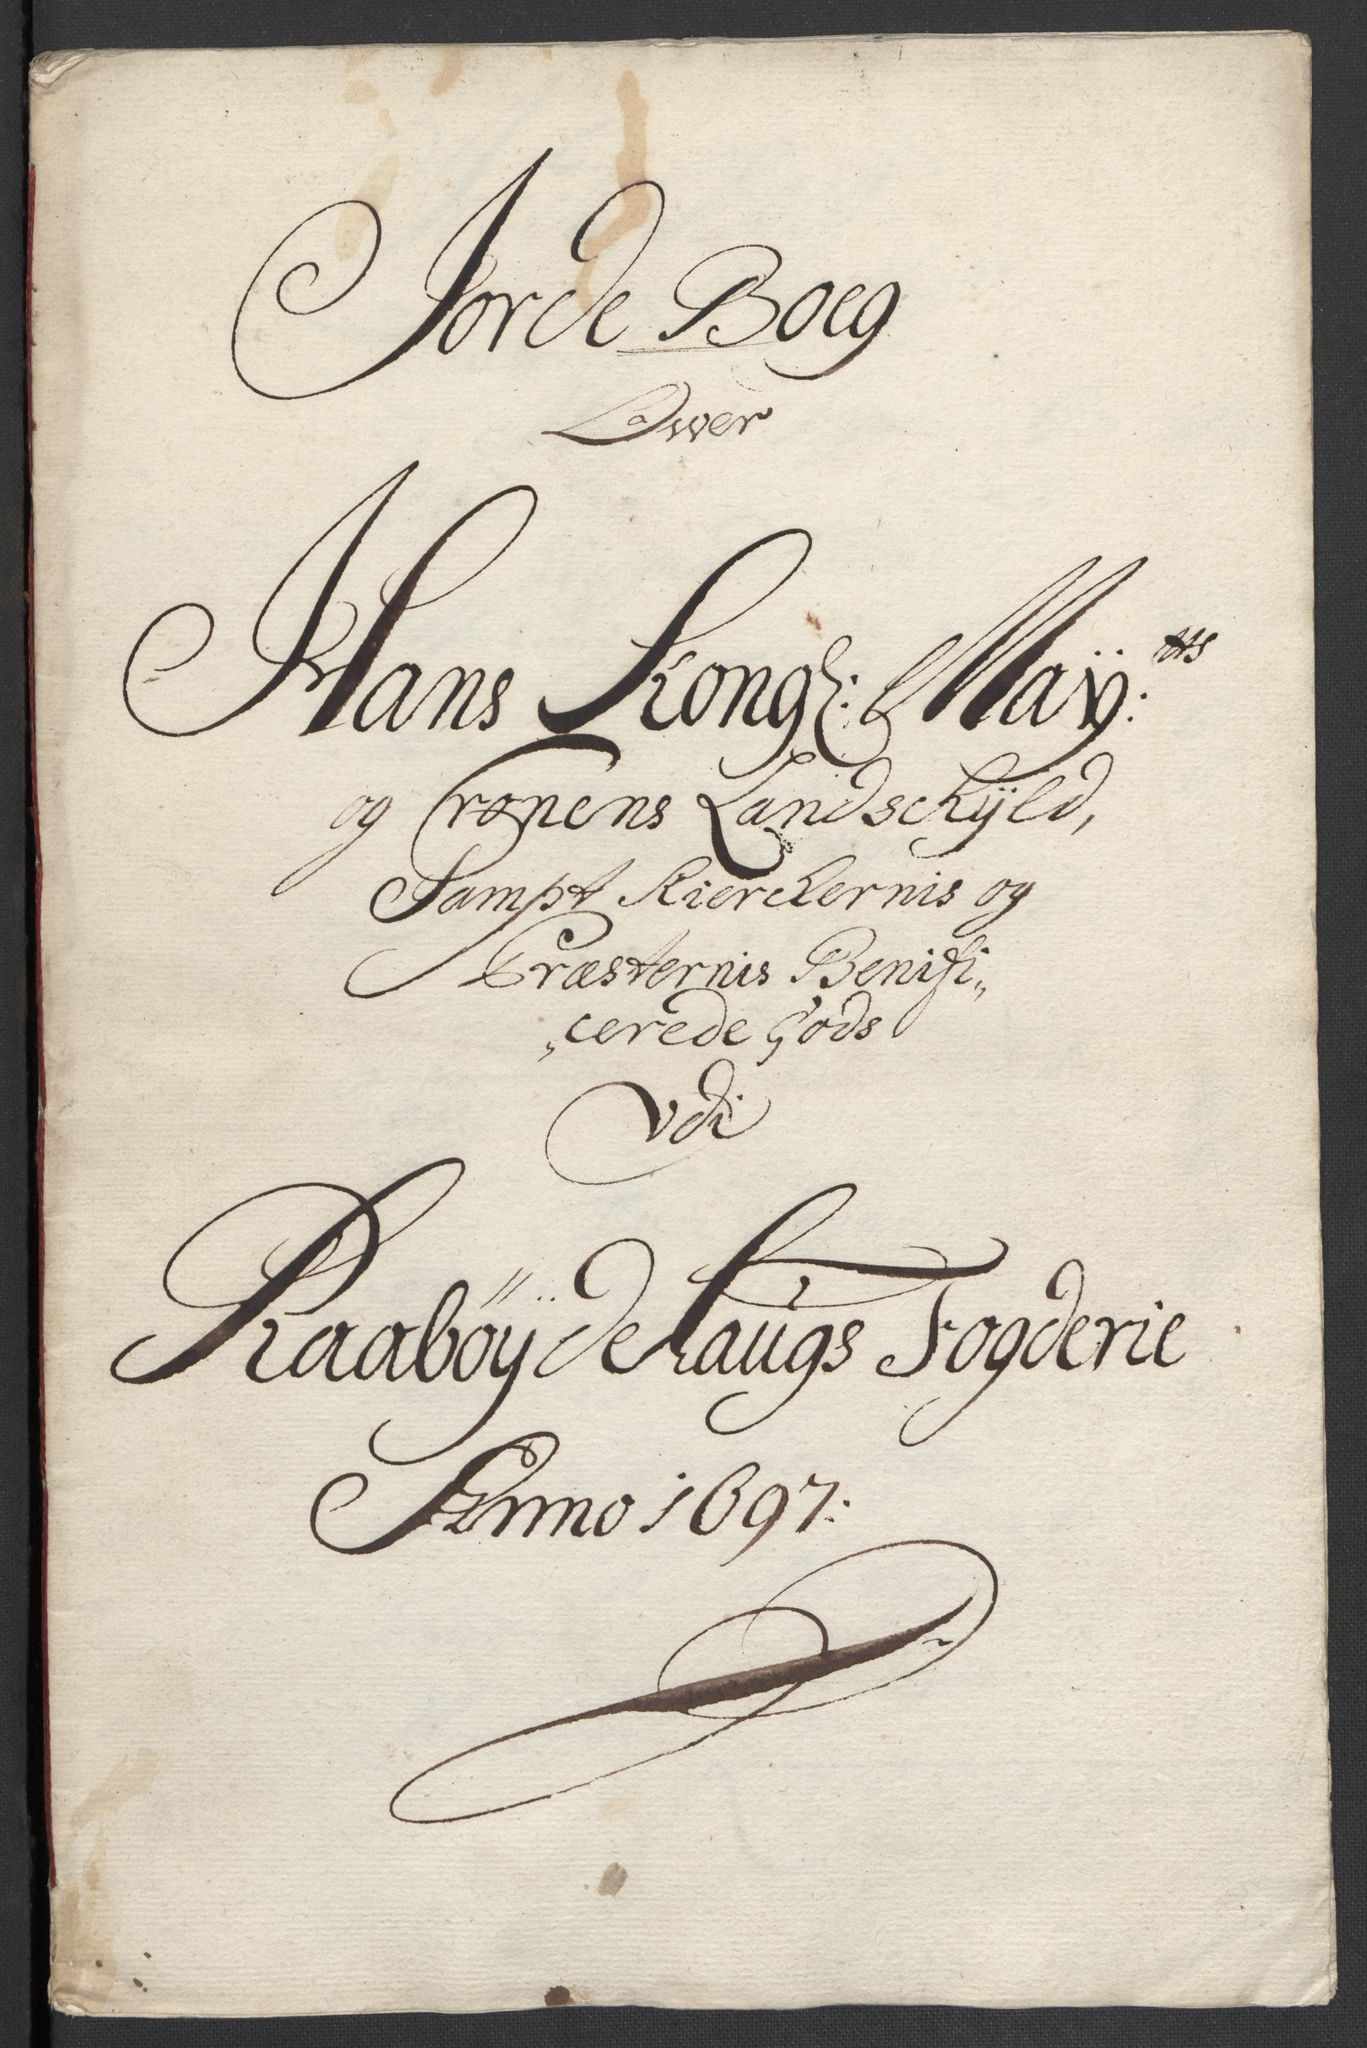 Jorde Boeg
Ower
Hans Kongl: May:tts
og Cronens Landschÿld,
Sampt Kierckernis og
Præsternis Benifi„
„cerede Gods
Vdi
Raaböÿdelaugs Fogderie
Anno 1697: